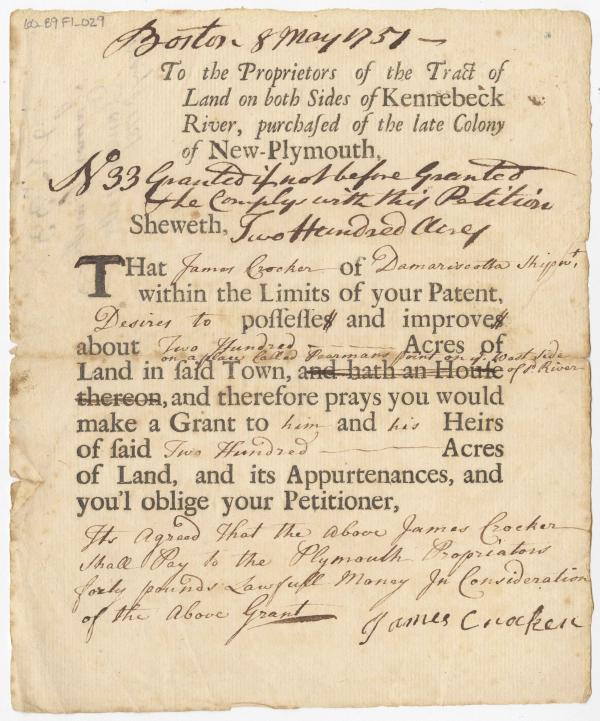 60-89 F1-029
Boston 8 May 1751 —
To the Proprietors of the Tract of
Land on both Sides of Kennebeck
River, purchaſed of the late Colony
of New-Plymouth,
No 33 Granted if not before Granted
& he Complys with this Petition
Sheweth, Two Hundred Acres
THat James Crocker of Damariscotta Shipwt.
within the Limits of your Patent,
Desires to poſſeſſes and improves
about Two Hundred Acres of
on a place called Pearmans point on ye. West side
Land in ſaid Town, and hath an Houſe of sd. River
thereon, and therefore prays you would
make a Grant to him and his Heirs
of ſaid Two Hundred — Acres
of Land, and its Appurtenances, and
you'l oblige your Petitioner,
Its Agreed That the Above James Crocker
Shall Pay to the Plymouth Propriators
forty pounds Lawfull Money In Consideration
of the Above Grant
James Crocker